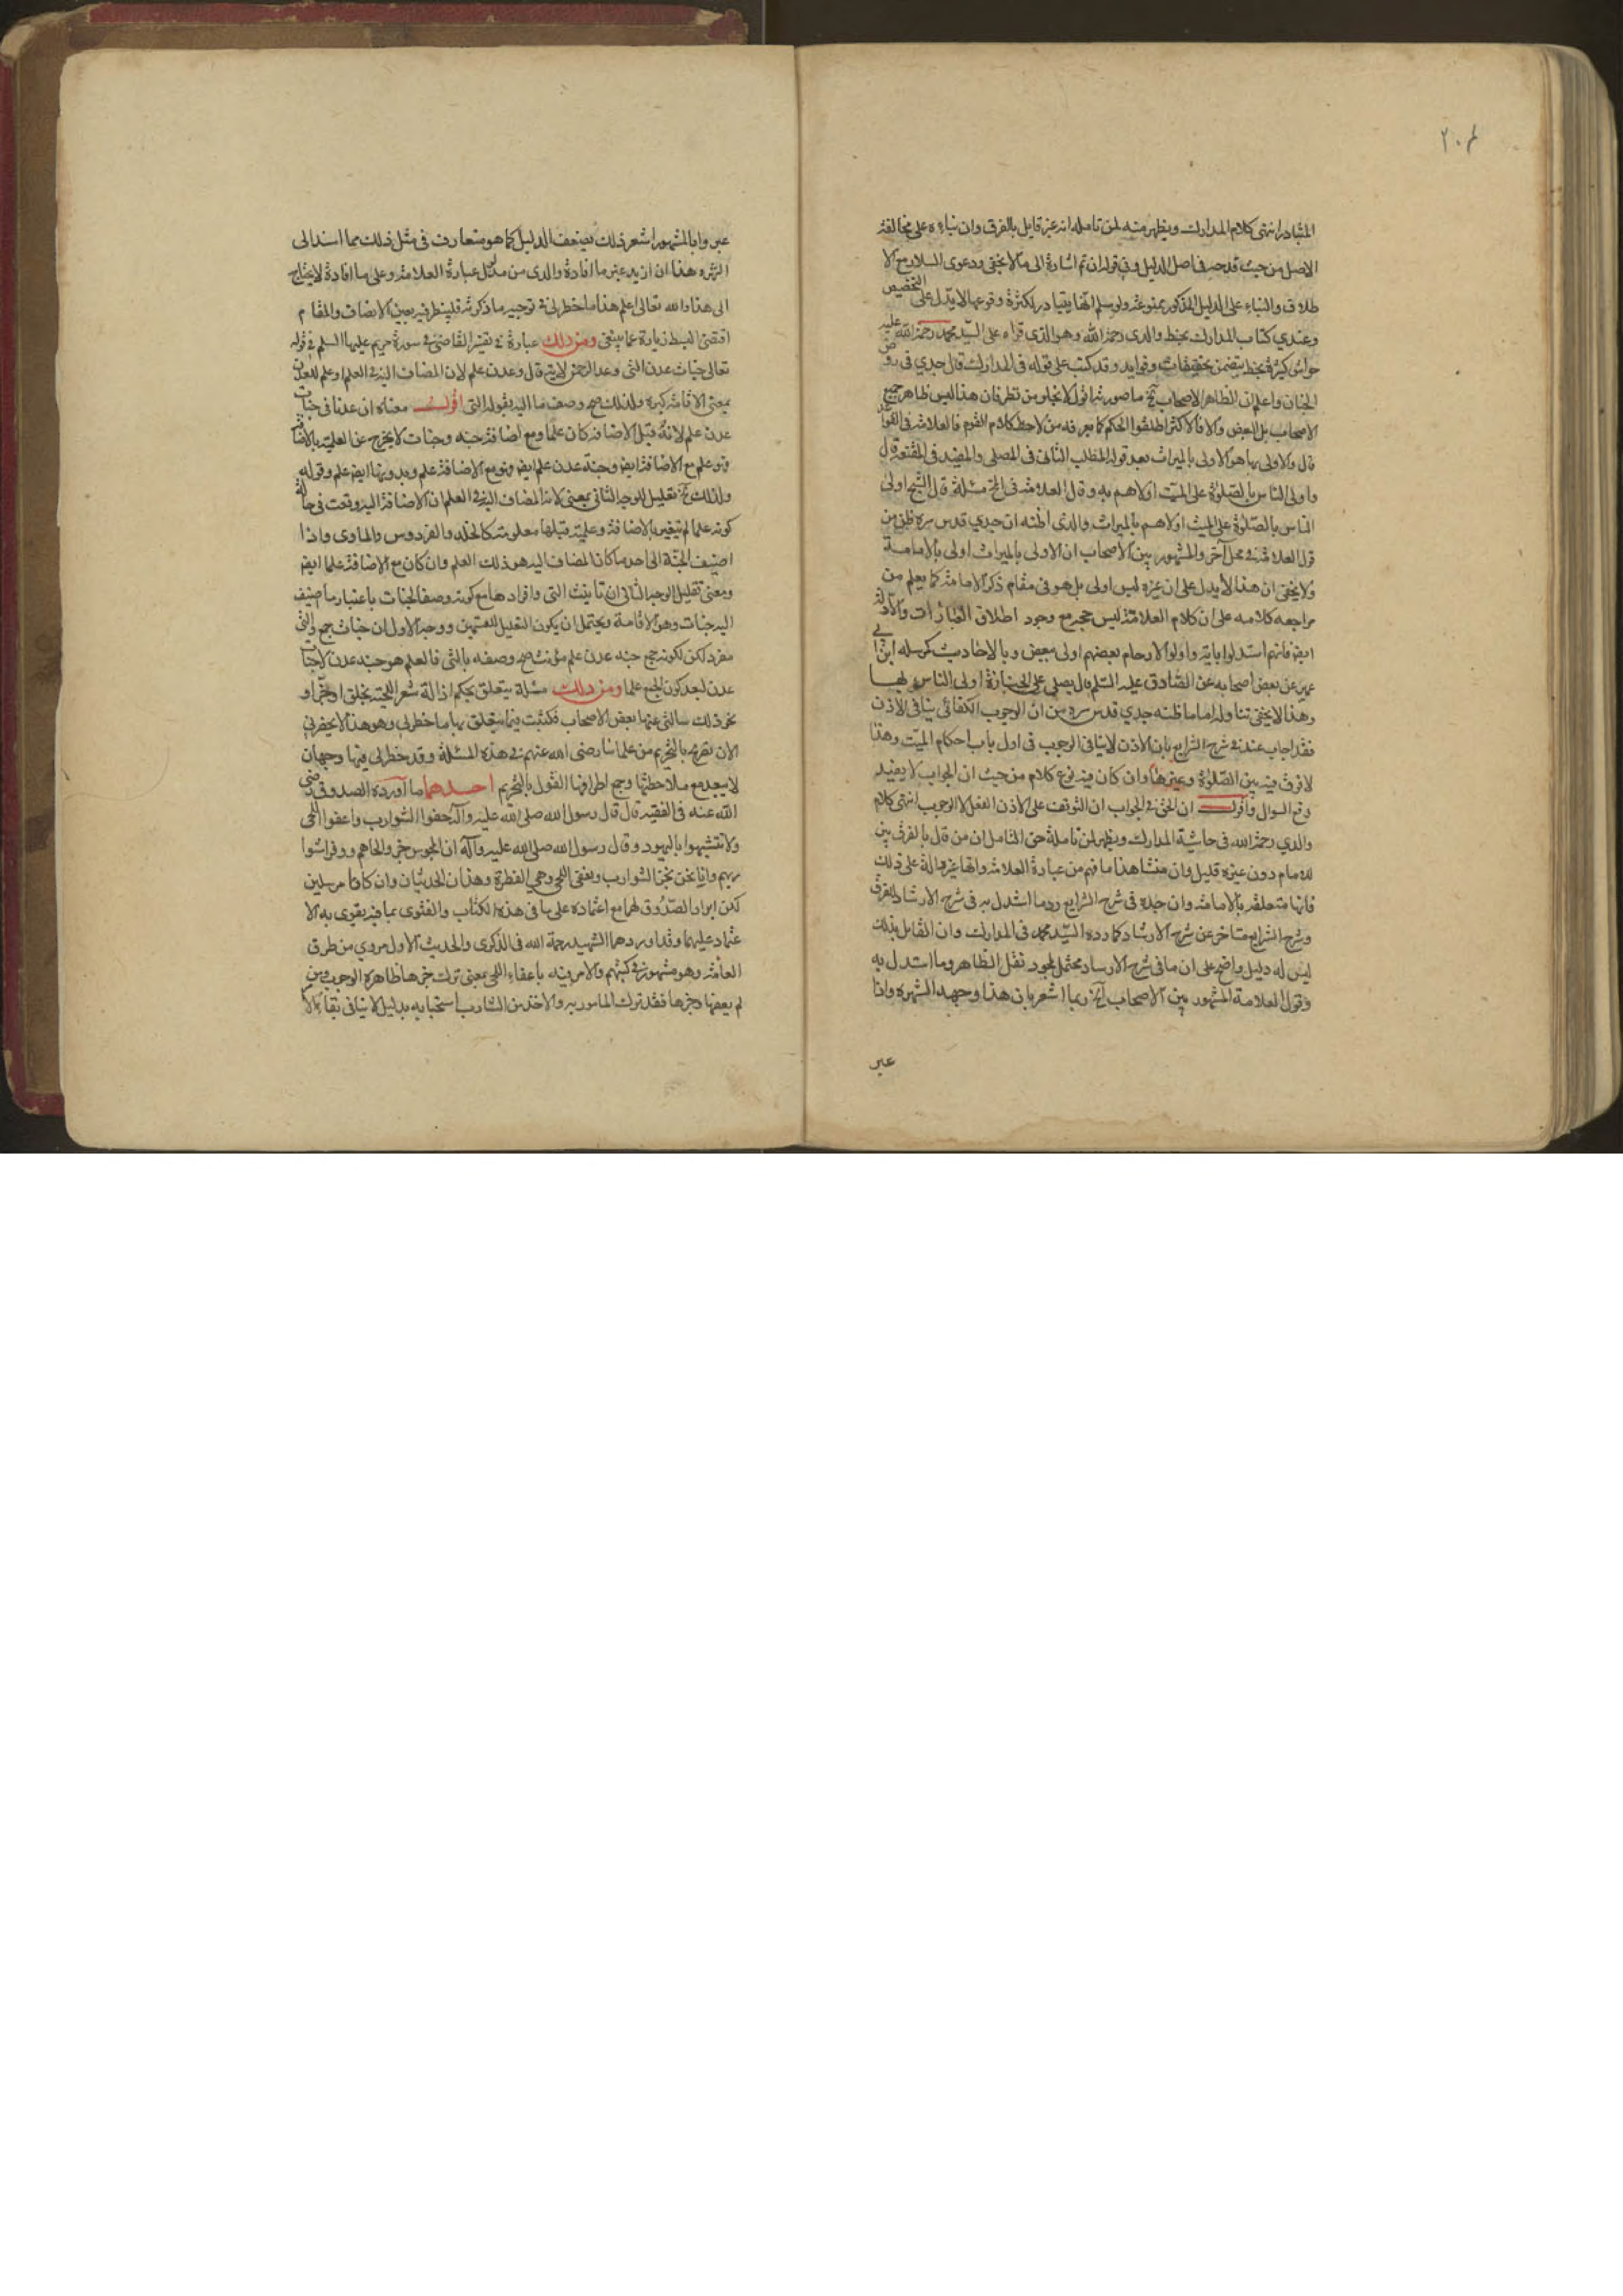 ٢٠٤
المتبادر انتهى كلام المدارك ويظهر منه لمن تامله انه غير قايل بالفرق وان بناءه على مخالفة
الاصل من حيث قدحه في اصل الدليل وفي قوله ان تم اشارة الى ما لا يخفى ودعوى التبادر مع الا
طلاق والبناء على الدليل المذكور ممنوعة ولو سلم انها يتبادر لكثرة وقوعها لا يدل على التخصيص
وعندي كتاب المدارك بخط والدي رحمه الله وهو الذي قراه على السيد محمد رحمة الله عليه
حواش كثيرة بخطه تتضمن تحقيقات وفوايد وقد كتب على قوله في المدارك قال جدي في روض
الجنان واعلم ان الظاهر الاصحاب الخ ما صورته اقول لا يخلو من نظر فان هذا ليس ظاهر جميع
الاصحاب بل البعض والا فالاكثر اطلقوا الحكم كما يعرفه من لاحظ كلام القوم فالعلامة في القواعد
قال والاولى بها هو الاولى بالميراث بعد قوله المطلب الثاني في المصلي والمفيد في المقنعة قال
واولى الناس بالصلوة على الميت اولاهم به وقال العلامة في الخ مسئلة قال الشيخ اولى
الناس بالصلوة على الميت اولاهم بالميراث والذي اظنه ان جدي قدس سره ظن من
قول العلامة في محل آخر والمشهور بين الاصحاب ان الاولى بالميراث اولى بالامامة
ولا يخفى ان هذا لا يدل على ان غيره ليس اولى بل هو في مقام ذكر الامامة كما يعلم من
مراجعه كلامه على ان كلام العلامة ليس حجر مع وجود اطلاق العبارات والادلة
ايضا فانهم استدلوا باية واولوا الارحام بعضهم اولى ببعض وبالاحاديث كمرسله ابن ابي
عمير عن بعض اصحابه عن الصادق عليه السلم قال يصلي على الجنازة اولى الناس بها
وهذا لا يخفى تناوله اما ما ظنه جدي قدس سره من ان الوجوب الكفائي ينافي الاذن
فقد اجاب عنه في شرح الشرايع بان الاذن لا ينافي الوجوب في اول باب احكام الميت وهذا
لا فرق فيه بين الصلوة وغيرها وان كان فيه نوع كلام من حيث ان الجواب لا يفيد
دفع السوال واقول ان الحق في الجواب ان التوقف على الاذن الفعل لا الوجوب انتهى كلام
والدي رحمه الله في حاشية المدارك ويظهر لمن تامله حق التامل ان من قال بالفرق بين
الامام دون غيره قليل وان منشا هذا ما فهم من عبارة العلامة وانها غير دالة على ذلك
فانها متعلقة بالامامة وان جده في شرح الشرايع رد ما استدل به في شرح الارشاد للفرق
وشرح الشرايع متاخر عن شرح الارشاد كما رده السيد محمد في المدارك وان القايل بذلك
ليس له دليل واضح على ان ما في شرح الارشاد محتمل لمجرد نقل الظاهر وما استدل به
وقول العلامة المشهور بين الاصحاب الخ ربما اشعر بان هذا وجهه الشهره واذا
عبر
عبر وا بالمشهور اشعر ذلك بضعف الدليل كما هو متعارف في مثل ذلك مما اسند الى
الشهره هذا ان اريد غير ما افادة والدي من مدلول عبارة العلامة وعلى ما افادة لا يحتاج
الى هذا والله تعالى اعلم هذا ما خطر لي في توجيه ما ذكرته فلينظر فيه بعين الانصاف والمقام
اقتضى البسط زيادة عما ينبغي ومن ذلك عبارة في تفسير القاضي في سورة مريم عليها السلم في قوله
تعالى جنات عدن التي وعد الرحمن الاية قال وعدن علم لان المضاف اليه في العلم او علم للعدن
بمعنى الاقامة كبرة ولذلك صح وصف ما اليه بقوله التي اقول معناه ان عدنا في جنات
عدن علم لانه قبل الاضافة كان علما ومع اضافة جنة وجنات لا يخرج عن العلمية بالاضافة
فهو علم مع الاضافة ايضا وجنة عدن علم ايضا فهو مع الاضافة علم وبدونها ايضا علم وقوله
ولذلك صح تعليل للوجه الثاني بمعنى لان المضاف اليه في العلم ان الاضافة اليه وقعت في حالة
كونه علما لم يتغير بالاضافة وعلميته قبلها معلومة كالخلد والفردوس والماوى واذا
اضيف الجنة الى احدها كان المضاف اليه هو ذلك العلم وان كان مع الاضافة علما ايضا
ومعنى تعليل الوجه الثاني ان تانيث التي وافرادها مع كونه وصفا لجنات باعتبار ما اضيف
اليه جنات وهو الاقامة ويحتمل ان يكون التعليل للقسمين ووجه الاول ان جنات جمع والتي
مفرد لكن لكونه جمع جنه عدن علم مؤنث صح وصفه بالتي فالعلم هو جنه عدن لا جنات
عدن لبعد كون الجمع علما ومن ذلك مسئلة يتعلق بحكم ازالة شعر اللحية بحلق او جز او
نحو ذلك سالني عنها بعض الاصحاب فكتبت فيما يتعلق بها ما خطر لي وهو هذا لا يحضرني
الان تصريح بالتحريم من علمائنا رضي الله عنهم في هذه المسئلة وقد خطر لي فيها وجهان
لا يبعد مع ملاحظتهما وجمع اطرافهما القول بالتحريم احدهما ما اورده الصدوق رضي
الله عنه في الفقيه قال قال رسول الله صلى الله عليه وآله احفوا الشوارب واعفوا اللحى
ولا تتشبهوا باليهود وقال رسول الله صلى الله عليه وآله ان المجوس جزوا لحاهم ووفروا شوا
ربهم وانا نحن نجز الشوارب ونعفي اللحى وهي الفطرة وهذان الحديثان وان كانا مرسلين
لكن ايراد الصدوق لهما مع اعتماده على ما في هذه الكتاب والفتوى بما فيه يقوى به الا
عتماد عليهما وقد اوردهما الشهيد رحمة الله في الذكرى والحديث الاول مروي من طرق
العامة وهو مشهور في كتبهم والامر فيه باعفاء اللحى بمعنى ترك جزها ظاهره الوجوب ومن
لم يعفها وجزها فقد ترك المامور به والاخذ من الشارب استحبابه بدليل لا ينافي بقاء